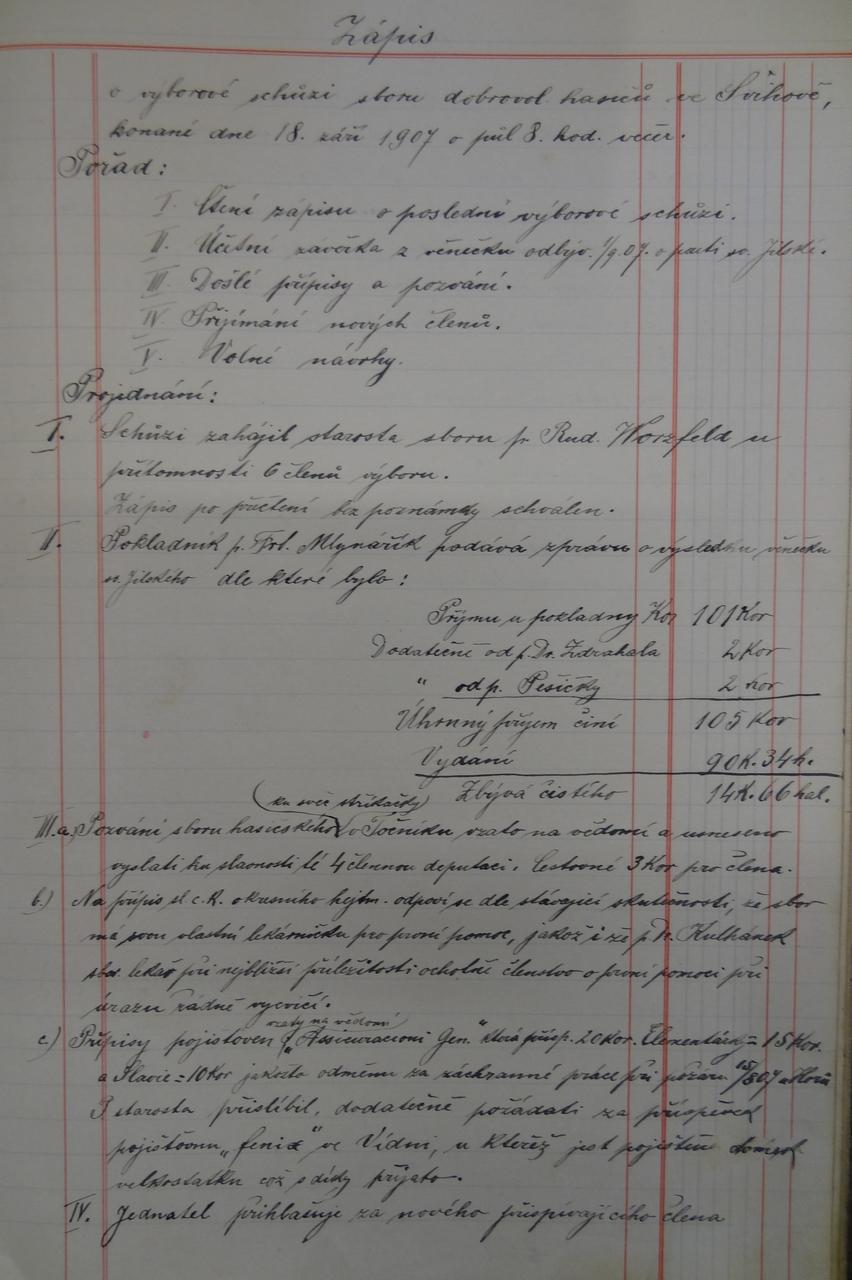 Zápis
o výborové schůzi sboru dobrovol. hasičů ve Švihově,
konané dne 18. září 1907 o půl 8. hod. večer.
Pořad:
I. Čtení zápisu o poslední výborové schůzi.
II. Účetní závěrka z věnečku odbýv. 1/9.07. o pouti sv. Jilské.
III. Došlé přípisy a pozvání.
IV. Přijímání nových členů.
V. Volné návrhy.
Projednání:
I. Schůzi zahájil starosta sboru p. Rud. Worzfeld u
přítomnosti 6 členů výboru.
Zápis po přečtení bez poznámky schválen.
II. Pokladník p. Frt. Mlynářík podává zprávu o výsledku věnečku
sv. Jilského dle které bylo:
Příjmu u pokladny Kor 101 Kor
Dodatečně od p. Dr. Zdrahala 2 Kor
" od p. Pešičky 2 Kor
Úhrnný příjem činí 105 Kor
Vydání 90 K. 34 h.
Zbývá čistého 14 K. 66 hal.
(ku svěc. stříkačky)
III. a) Pozvání sboru hasičského v Točníku vzato na vědomí a usneseno
vyslati ku slavnosti té 4 člennou deputaci. Cestovné 3 Kor pro člena.
b.) Na přípis sl. c. k. okresního hejtm. odpoví se dle stávající skutečnosti, že sbor
má svou vlastní lékárničku pro první pomoc, jakož i že p. Dr. Kulhánek
sbor. lékař při nejbližší příležitosti ochotně členstvo o první pomoci při
úrazu řádně vycvičí.
vzaty na vědomí
c) Přípisy pojistoven "Assicuracioni Gen." která přisp. 20 Kor. Elementárky = 15 Kor.
a Slavie = 10 Kor jakožto odměnu za záchranné práce při požáru 15/8 07
P. starosta přislíbil, dodatečně požádati za příspěvek
pojišťovnu "fenix" ve Vídni, u kteréž jest pojištěn
velkostatku což s díky přijato.
IV. Jednatel přihlašuje za nového přispívajícího člena